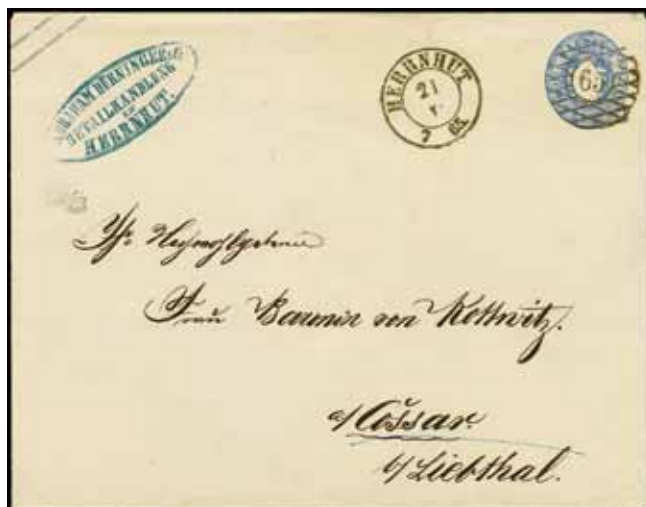 ABRAHAM DÜRNINGER & C.
DETAILHANDLUNG
in
HERRNHUT.
HERRNHUT
21
V.
7 65
65
Hochwohlgeboren
Frau Baronin von Kottwitz.
a/ Cossar.
b/ Liebthal.